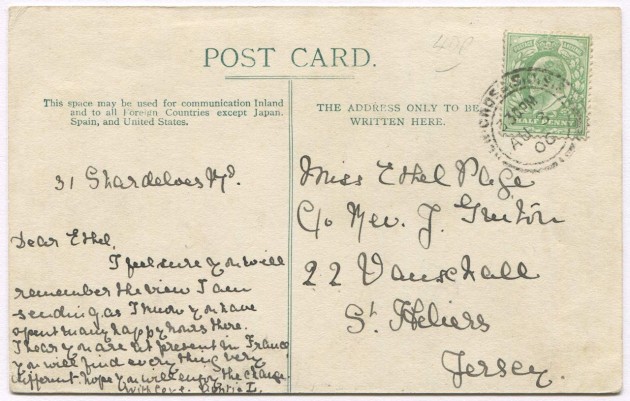 POST CARD.
This space may be used for communication Inland
and to all Foreign Countries except Japan,
Spain, and United States.
THE ADDRESS ONLY TO BE
WRITTEN HERE.
HALF PENNY
NEW CROSS S.O. S.E.
AU
06
31 Shardeloes Rd.
Dear Ethel,
I feel sure you will
remember the view I am
sending as I know you have
spent many happy hours there.
I hear you are at present in France
you will find everything very
different. hope you will enjoy the change.
With love.
Miss Ethel Page
C/o Rev. J.
22 Vauxhall
St. Heliers
Jersey.